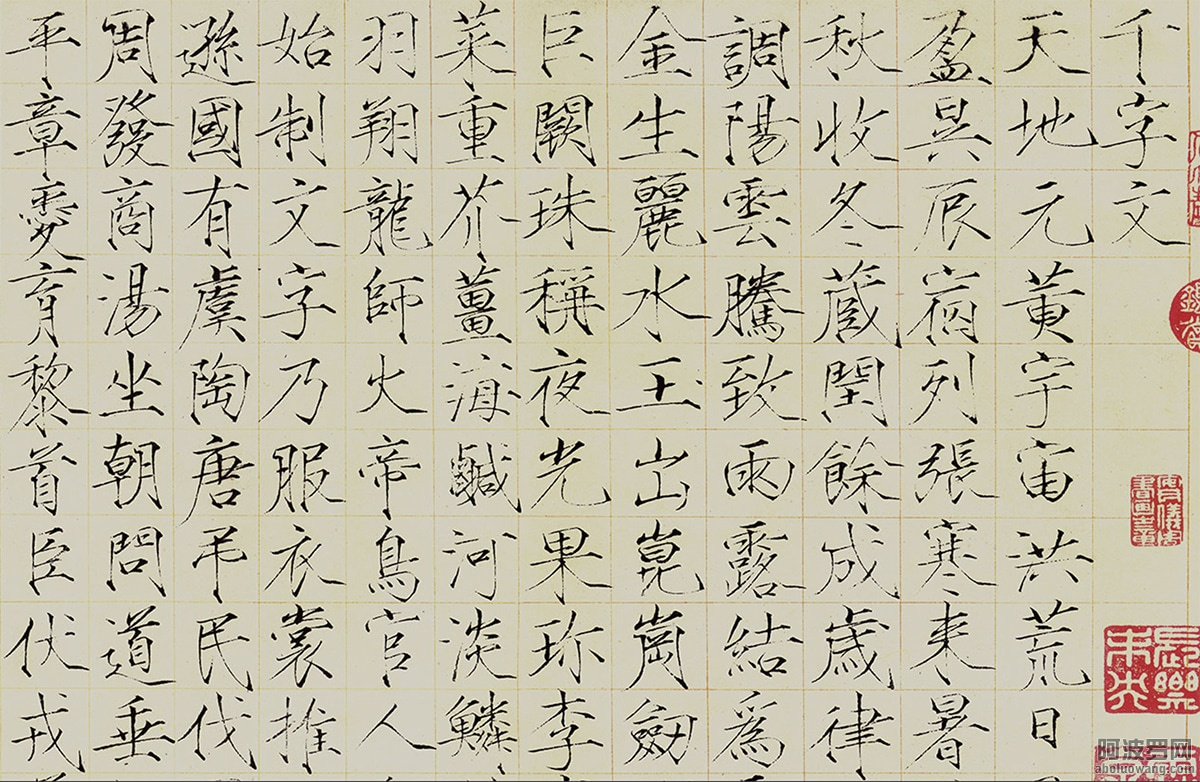 千字文
天地元黃宇宙洪荒日
盈昃辰宿列張寒来暑
秋收冬蔵閏餘成歳律
調陽雲騰致雨露結為
金生麗水玉出崑崗劒
巨闕珠稱夜光果珎李
菜重芥薑海鹹河淡鱗
羽翔龍師火帝鳥官人
始制文字乃服衣裳推
遜國有虞陶唐弔民伐
周發商湯坐朝問道垂
平章愛育黎首臣伏戎
阿波罗网
aboluowang.com